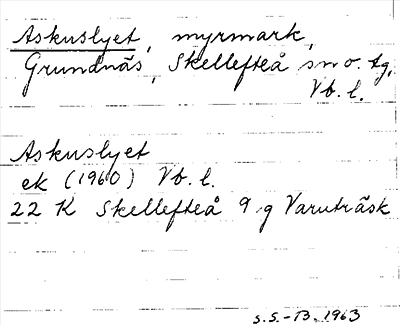 Askuslyet, myrmark,
Grundnäs, Skellefteå sn o. tg,
Vb. l.
Askuslyet
ek (1960) Vb. l.
22 K Skellefteå 9 g Varuträsk
S.S.-B. 1963